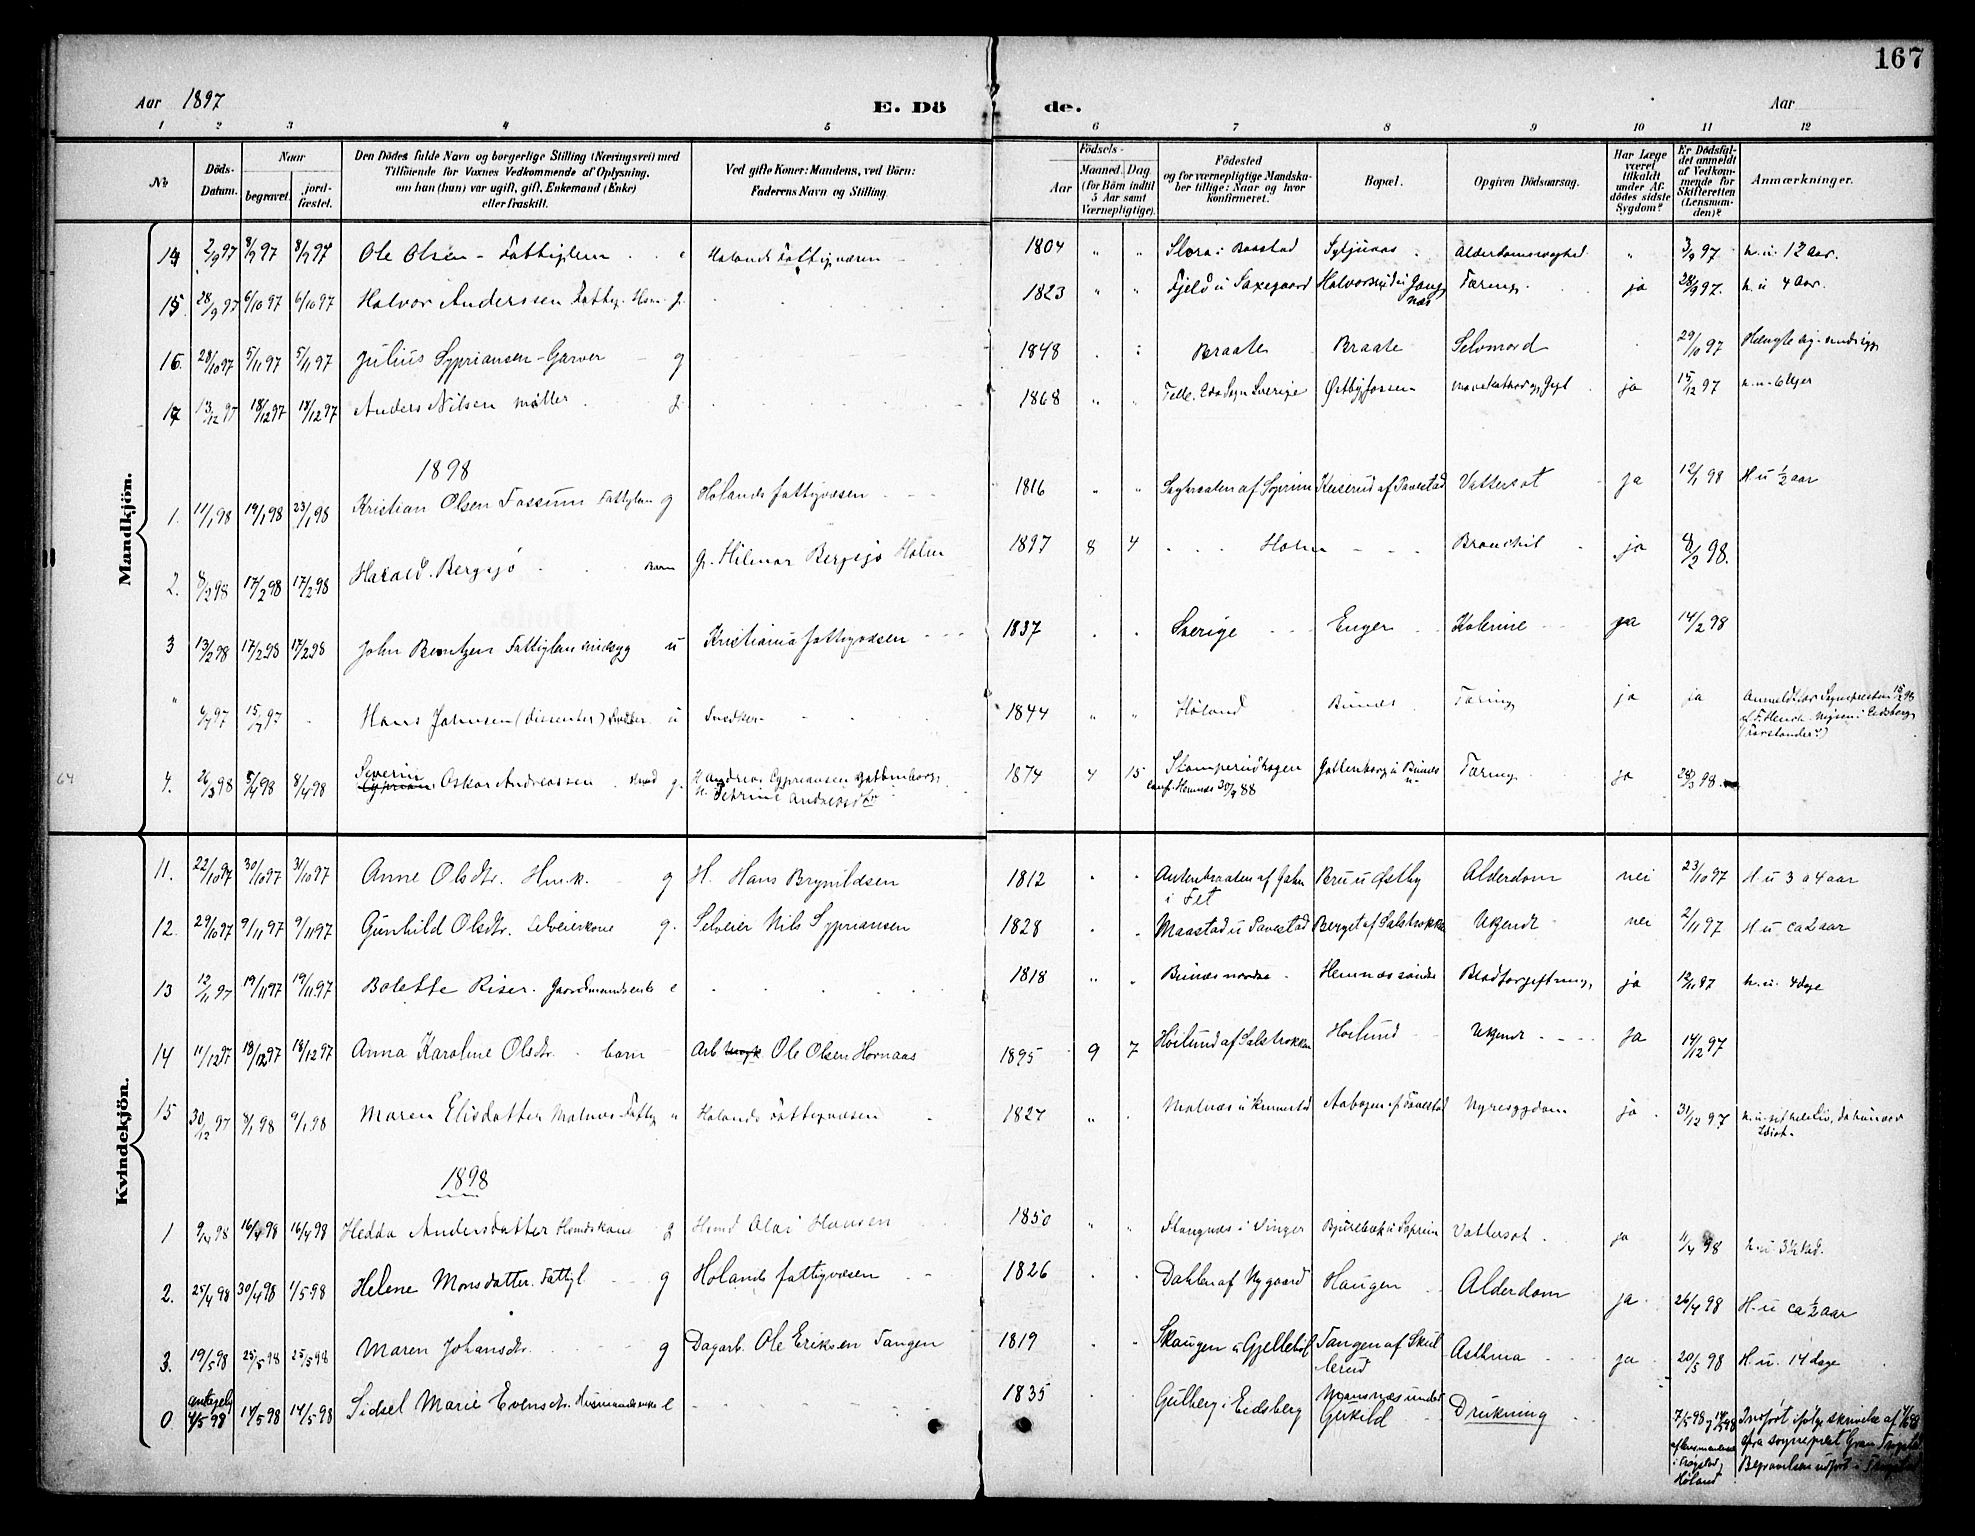 167
Aar 1897 E. Dö de. Aar
1 2 3 4 5 6 7 8 9 10 11 12
No
Döds-Datum.
Naar
begravet.
jord-fæstet.
Den Dödes fulde Navn og borgerlige Stilling (Næringsvei) med
Tilföiende for Voxnes Vedkommende af Oplysning,
om han (hun) var ugift, gift, Enkemand (Enke)
eller fraskilt.
Ved gifte Koner: Mandens, ved Börn:
Faderens Navn og Stilling.
Födsels-
Aar
Maaned. Dag
(for Börn indtil
5 Aar samt
Værnepligtige).
Födested
og for værnepligtige Mandska-
ber tillige: Naar og hvor
konfirmeret.
Bopæl.
Opgiven Dödsaarsag.
Har Læge
været
tilkaldt
under Af-
dödes sidste
Sygdom?
Er Dödsfal-
det anmeldt
af Vedkom-
mende for
Skifteretten
(Lensman-
den)?
Anmærkninger.
Mandkjön.
14 2/9 97 8/9 97 8/9 97 Ole Olsen - Fattiglem e Hølands Fattigvæsen 1804 " " Slora i Baastad Alderdomssvaghed " 3/9 97 h. u. 12 Aar.
15 28/9 97 6/10 97 6/10 97 Halvor Anderssen Fattig. Hsm g. 1823 " " Fjeld u Saxegaard Tæring ja 28/9 97. h. u 4 Aar.
16. 28/10 97 5/11 97 5/11 97 Julius Sypriansen - Garver g 1848 Braate Braate Selvmord 29/10 97
17 13/12 97 18/12 97 18/12 97 Anders Nilsen møller g. 1868 " " Sverige Østbyfossen ja 15/12 97 h. u. 6 Uger
1898
1. 11/1 98 19/1 98 23/1 98 Kristian Olsen Fossum Fattiglem g Hølands fattigvæsen 1816 " " Kuserud af Tævestad Vattersot ja 12/1 98 H u 1/2 aar
2. 8/2 98 17/2 98 17/2 98 Harald Bergsjø Barn G. Hilmar Bergsjø Holm 1897 8 4 Holm Bronchit ja 8/2 98.
3 13/2 98 17/2 98 17/2 98 John Berntzen Fattiglem sindsyg u Kristiania fattigvæsen 1837 Sverige Enger Kolerine ja 14/2 98
" 6/7 97 15/7 97 Hans Johnsen (dissenter) u Snedker 1844 " " Høland Bunæs Tæring ja ja Anmeldt for Sognepresten 15/2 98
(Forstander?)
64 4. 26/3 98 8/4 98 8/4 98 Severin Cyprian Oskar Andreassen g. Andreas Cypriansen 1874 4 15 Stomperudhagen Tæring ja 28/3 98.
Petrine Andersdtr conf. Hemnes 30/9 88
Kvindekjön.
11. 22/10 97 30/10 97 31/10 97 Anne Olsdtr. Hmk. g H. Hans Brynildsen 1812 Antenbraaten af Jahr Bru u Østby Alderdom nei 23/10 97 H u 3 a 4 aar
i Fet
12. 29/10 97 9/11 97 9/11 97 Gunhild Olsdtr. selveierkone g. Selveier Nils Sypriansen 1828 Maastad u Tævestad Berget af Salstrøkken Ukjendt nei 2/11 97 H u ca 2 aar
13 12/11 97 19/11 97 19/11 97 Bolette Riser. Gaardmandsenke e 1818 " Bunæs nordre Hemnæs søndre Blodforgiftning, ja 12/11 97 h. u. 4 dage
14 11/12 97 18/12 97 18/12 97 Anna Karoline Olsdtr. barn Arb Ole Olsen Hornaas 1895 9 7 Hoilund af Salstrøkken Hoilund Ukjendt ja 14/12 97
15 30/12 97 9/1 98 9/1 98 Maren Elisdatter Molnæs Fattig u Hølands Fattigvæsen 1827 " Molnæs u Krusestad Aabogen af Tævestad Nyresygdom ja 31/12 97 h. u. sit hele Liv, da hun var
Idiot.
1898
1 9/4 98 16/4 98 16/4 98 Hedda Andersdatter Hsmdskone g Hsmd Olai Hansen 1850 " " Stangnæs i Vinger Vattersot ja 11/4 98
2. 25/4 98 30/4 98 1/5 98 Helene Monsdatter. Fattigl. g Hølands fattigvæsen 1826 Dahlen af Nygaard Haugen Alderdom ja 26/4 98 H. u ca 1/2 aar
3. 19/5 98 25/5 98 25/5 98 Maren Johansdtr. g Dagarb. Ole Eriksen Tangen 1819 Skaugen u Gjellebøl Tangen af Skul- Asthma ja 20/5 98 H u. 14 dage
lerud
0 antagelig 4/5 98 14/5 98 14/5 98 Sidsel Marie Evensdtr. Husmandsenke e 1835 Gulberg i Eidsberg Monsnæs under Gukild Drukning 7/5 98 14/5 98 Indført ifølge skrivelse af
fra sogneprest Gran Trøgstad
Høland Begravelsen udført i Trøgstad